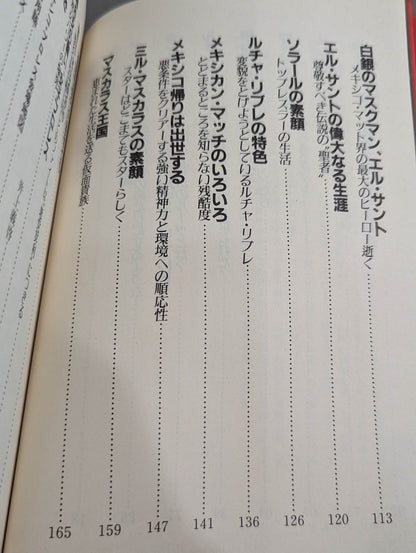 白銀のマスクマン、エル・サント
メキシコ・マット界の最大のヒーロー逝く 113
エル・サントの偉大なる生涯
尊敬すべき伝説の“聖者” 120
ソラールの素顔
トップレスラーの生活 126
ルチャ・リブレの特色
変貌をとげようとしているルチャ・リブレ 136
メキシカン・マッチのいろいろ
とどまるところを知らない残酷度 141
メキシコ帰りは出世する
悪条件をクリアーする強い精神力と環境への順応性 147
ミル・マスカラスの素顔
スターはどこまでもスターらしく 159
マスカラス王国
生活を送る仮面貴族 165